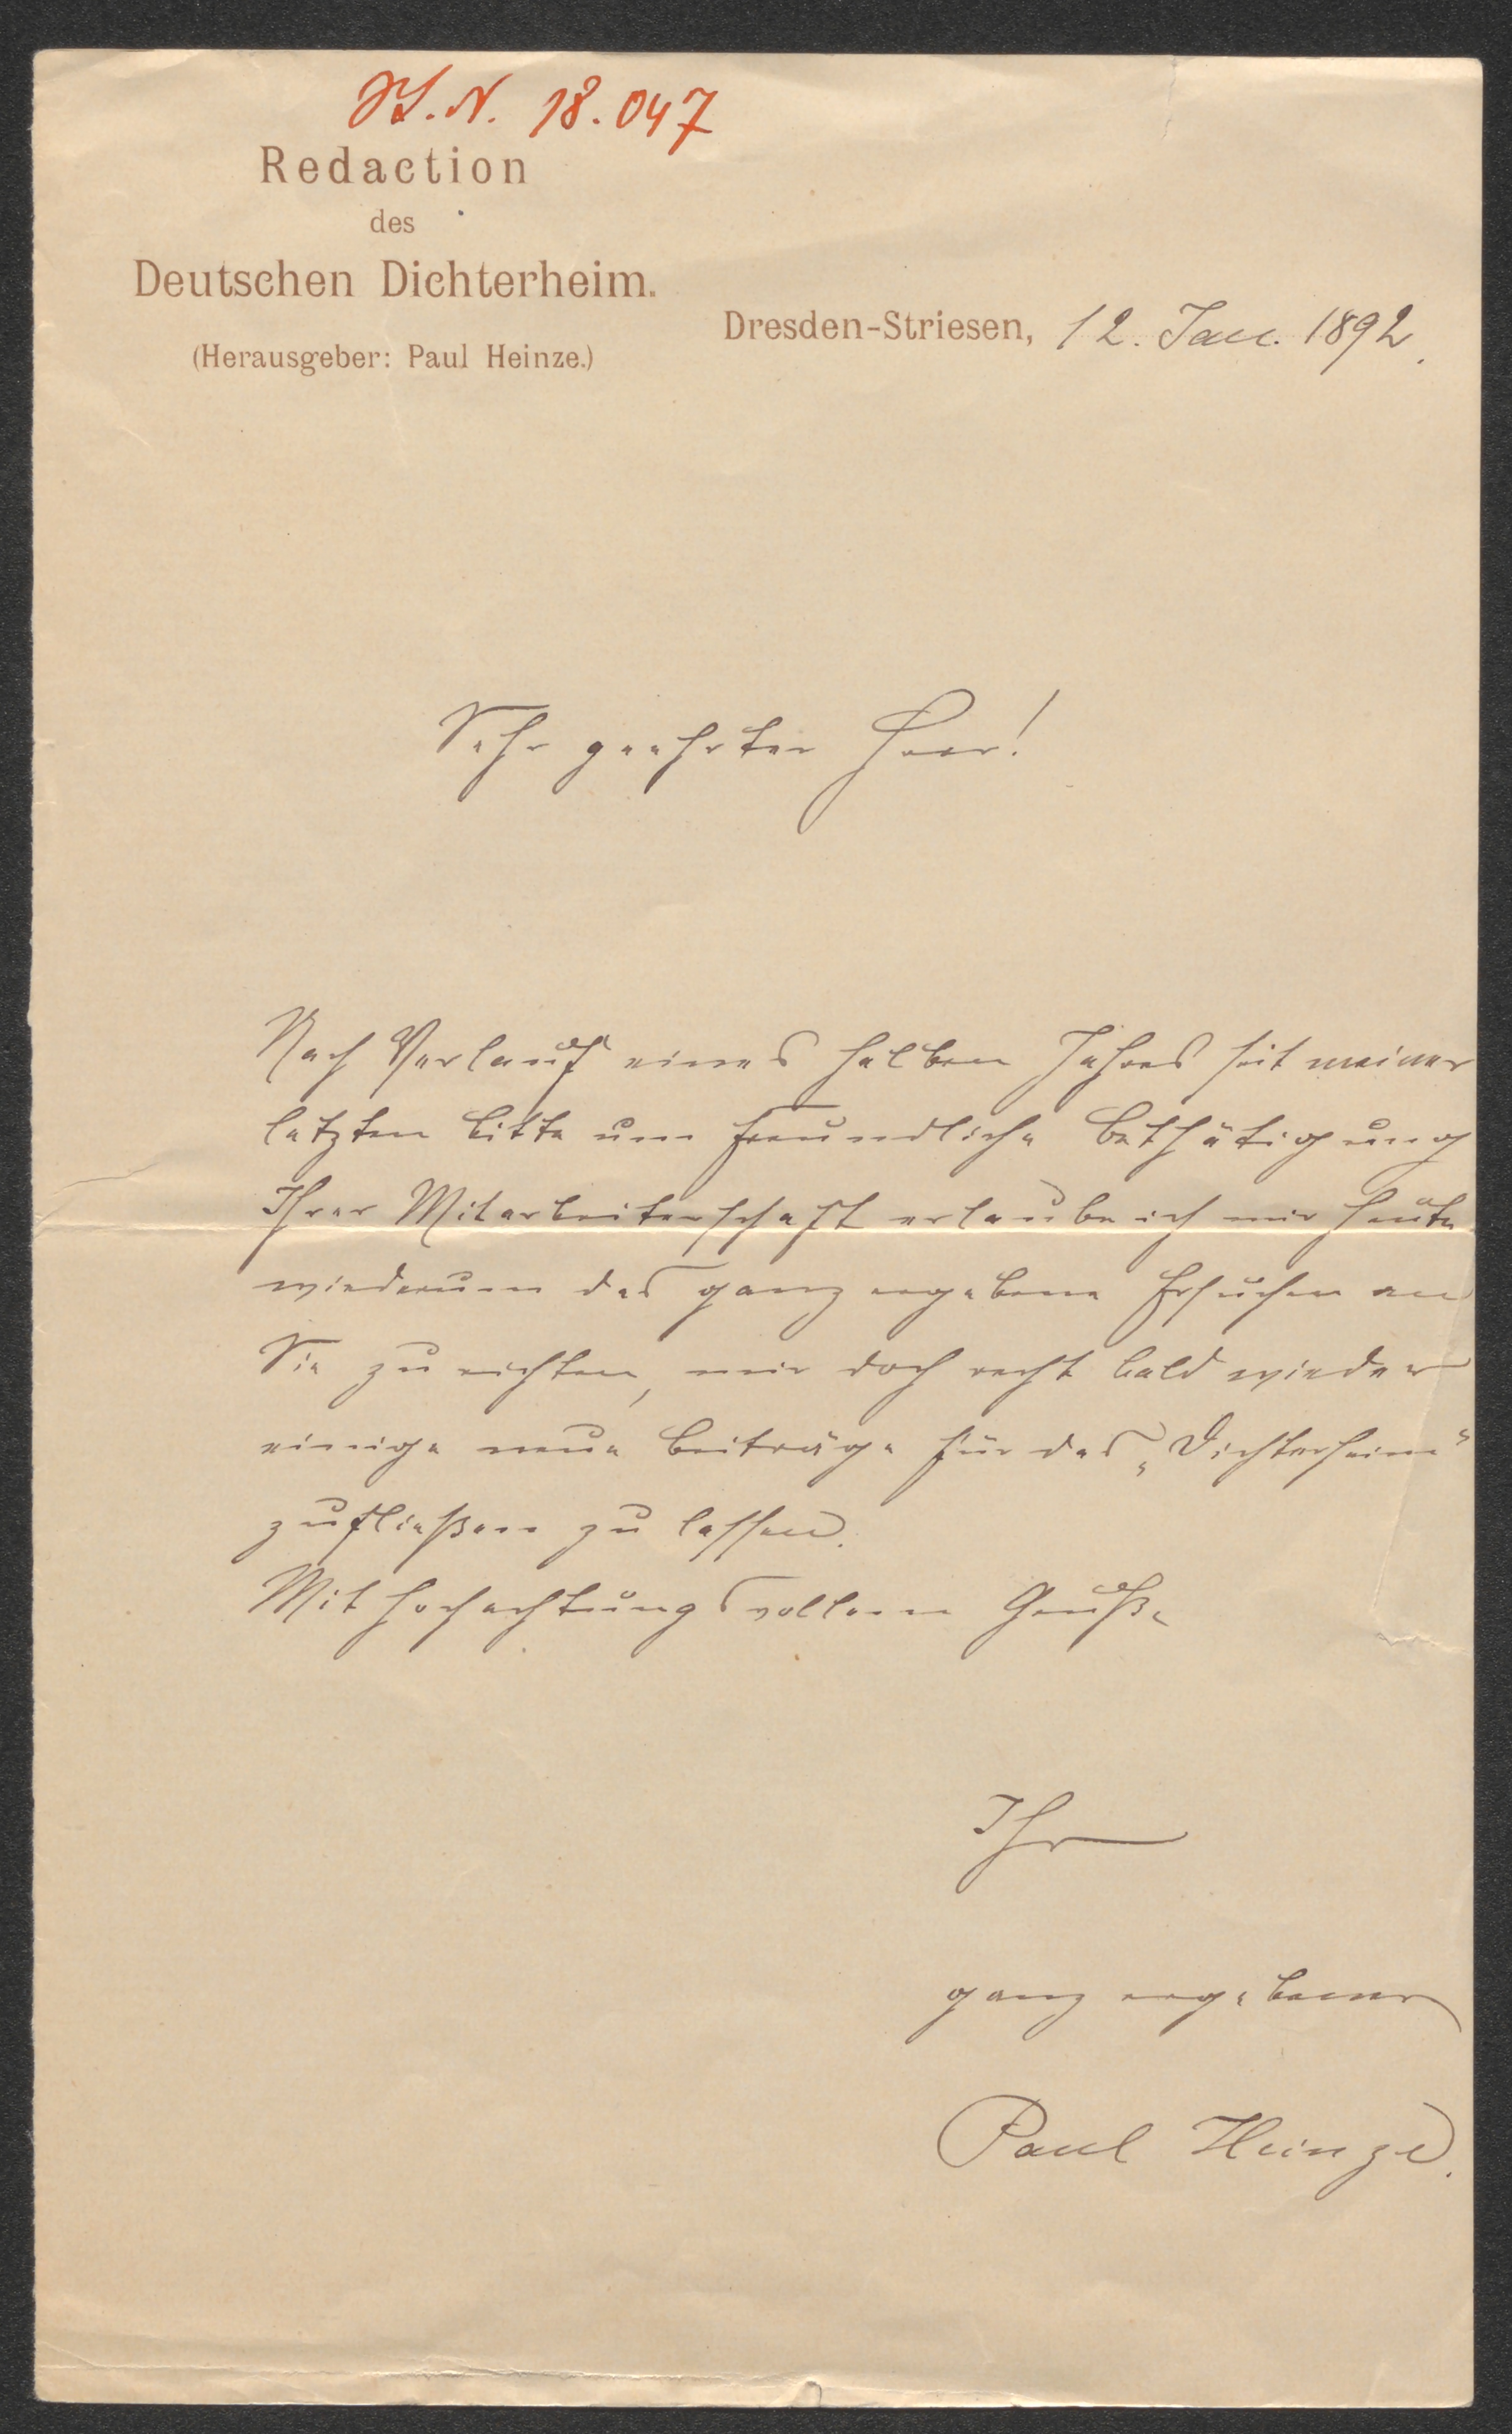 J.N. 18.047
Redaction
des
Deutschen Dichterheim.
(Herausgeber: Paul Heinze.)
Dresden-Striesen, 12. Jan. 1892.
Sehr geehrter Herr!
Nach Verlauf eines halben Jahres seit meiner
letzten Bitte um freundliche Bethätigung
Ihrer Mitarbeiterschaft erlaube ich mir heute
wiederum das ganz ergebene Ersuchen an
Sie zu richten, mir doch recht bald wieder
einige neue Beiträge für das „Dichterheim“
zufließen zu lassen.
Mit hochachtungsvollem Gruße
Ihr
ganz ergebener
Paul Heinze.